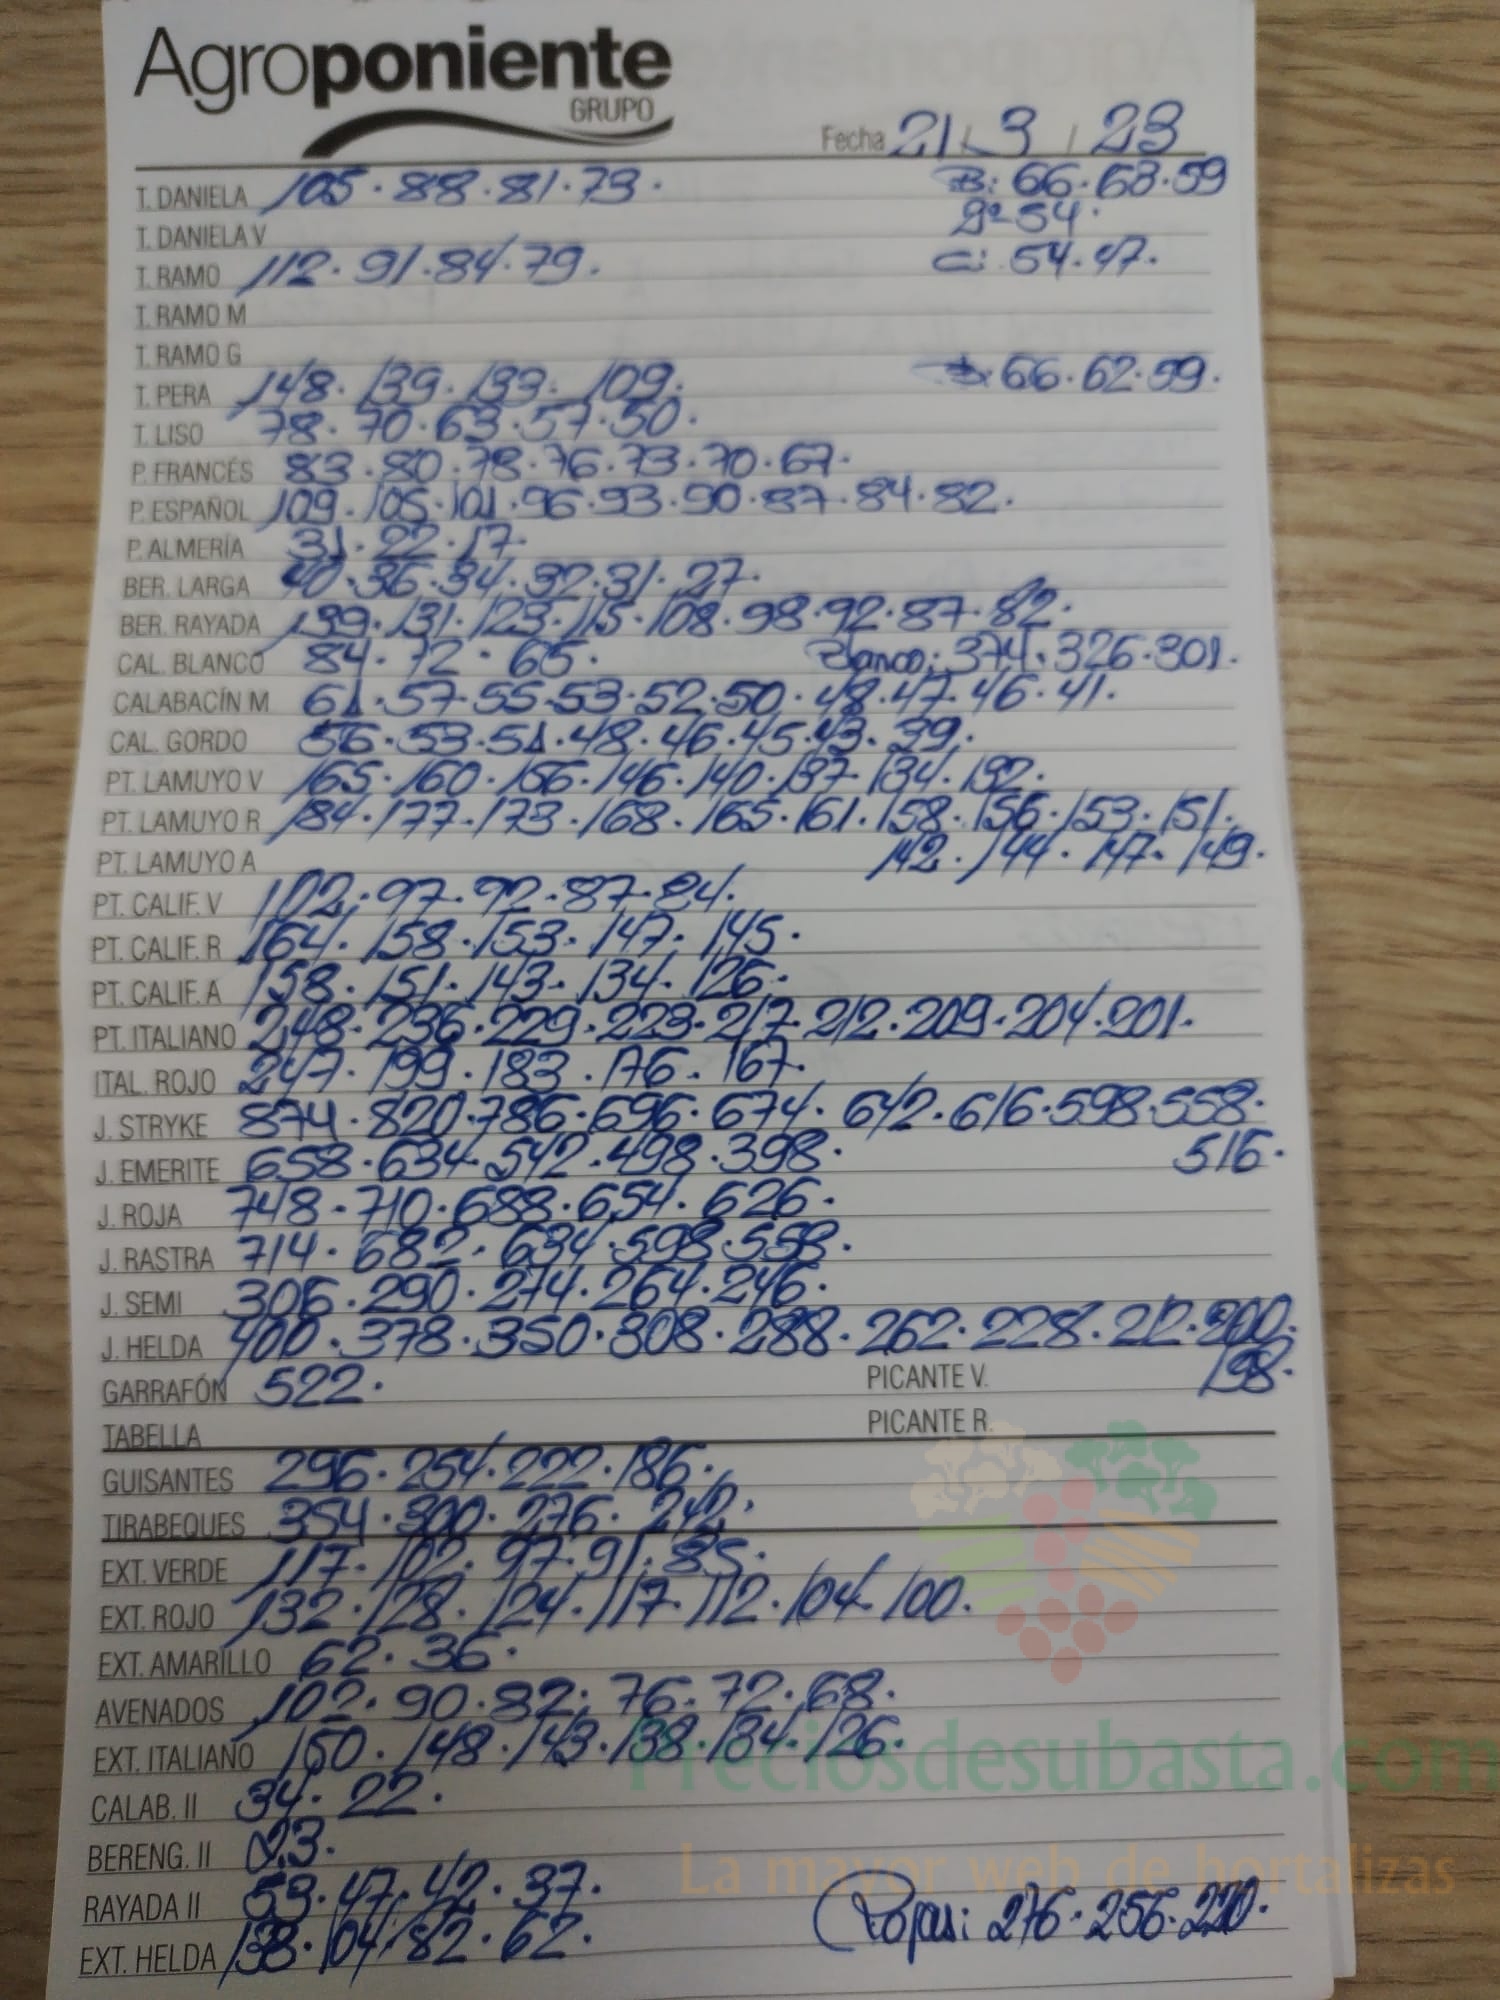 Agroponiente
GRUPO
Fecha 21 / 3 / 23
T. DANIELA 105. 88. 81. 73. B: 66. 63. 59
2ª 54.
T. DANIELA V
T. RAMO 112. 91. 84. 79. C: 54. 47.
T. RAMO M
T. RAMO G
T. PERA 148. 139. 133. 109. 66. 62. 59.
T. LISO 78. 70. 63. 57. 50.
P. FRANCÉS 83. 80. 78. 76. 73. 70. 67.
P. ESPAÑOL 109. 105. 101. 96. 93. 90. 87. 84. 82.
P. ALMERÍA 31. 22. 17.
BER. LARGA 40. 36. 34. 32. 31. 27.
BER. RAYADA 139. 131. 123. 115. 108. 98. 92. 87. 82.
CAL. BLANCO 84. 72. 65. Blanco: 374. 326. 301.
CALABACÍN M 61. 57. 55. 53. 52. 50. 48. 47. 46. 41.
CAL. GORDO 56. 53. 51. 48. 46. 45. 43. 39.
PT. LAMUYO V 165. 160. 156. 146. 140. 137. 134. 132.
PT. LAMUYO R 184. 177. 173. 168. 165. 161. 158. 156. 153. 151.
PT. LAMUYO A 142. 144. 147. 149.
PT. CALIF. V 102. 97. 92. 87. 84.
PT. CALIF. R 164. 158. 153. 147. 145.
PT. CALIF. A 158. 151. 143. 134. 126.
PT. ITALIANO 248. 236. 229. 223. 217. 212. 209. 204. 201.
ITAL. ROJO 247. 199. 183. 176. 167.
J. STRYKE 874. 820. 786. 696. 674. 642. 616. 598. 558.
J. EMERITE 658. 634. 542. 498. 398. 516.
J. ROJA 748. 710. 688. 654. 626.
J. RASTRA 714. 682. 634. 598. 558.
J. SEMI 306. 290. 274. 264. 246.
J. HELDA 400. 378. 350. 308. 288. 262. 228. 212. 200.
GARRAFÓN 522. PICANTE V. 198.
TABELLA PICANTE R.
GUISANTES 296. 254. 222. 186.
TIRABEQUES 354. 300. 276. 242.
EXT. VERDE 117. 102. 97. 91. 85.
EXT. ROJO 132. 128. 124. 117. 112. 104. 100.
EXT. AMARILLO 62. 36.
AVENADOS 102. 90. 82. 76. 72. 68.
EXT. ITALIANO 150. 148. 143. 138. 134. 126.
Preciosdesubasta.com
CALAB. II 34. 22.
BERENG. II 23.
La mayor web de hortalizas
RAYADA II 53. 47. 42. 37.
Rojas: 276. 256. 220.
EXT. HELDA 138. 104. 82. 62.